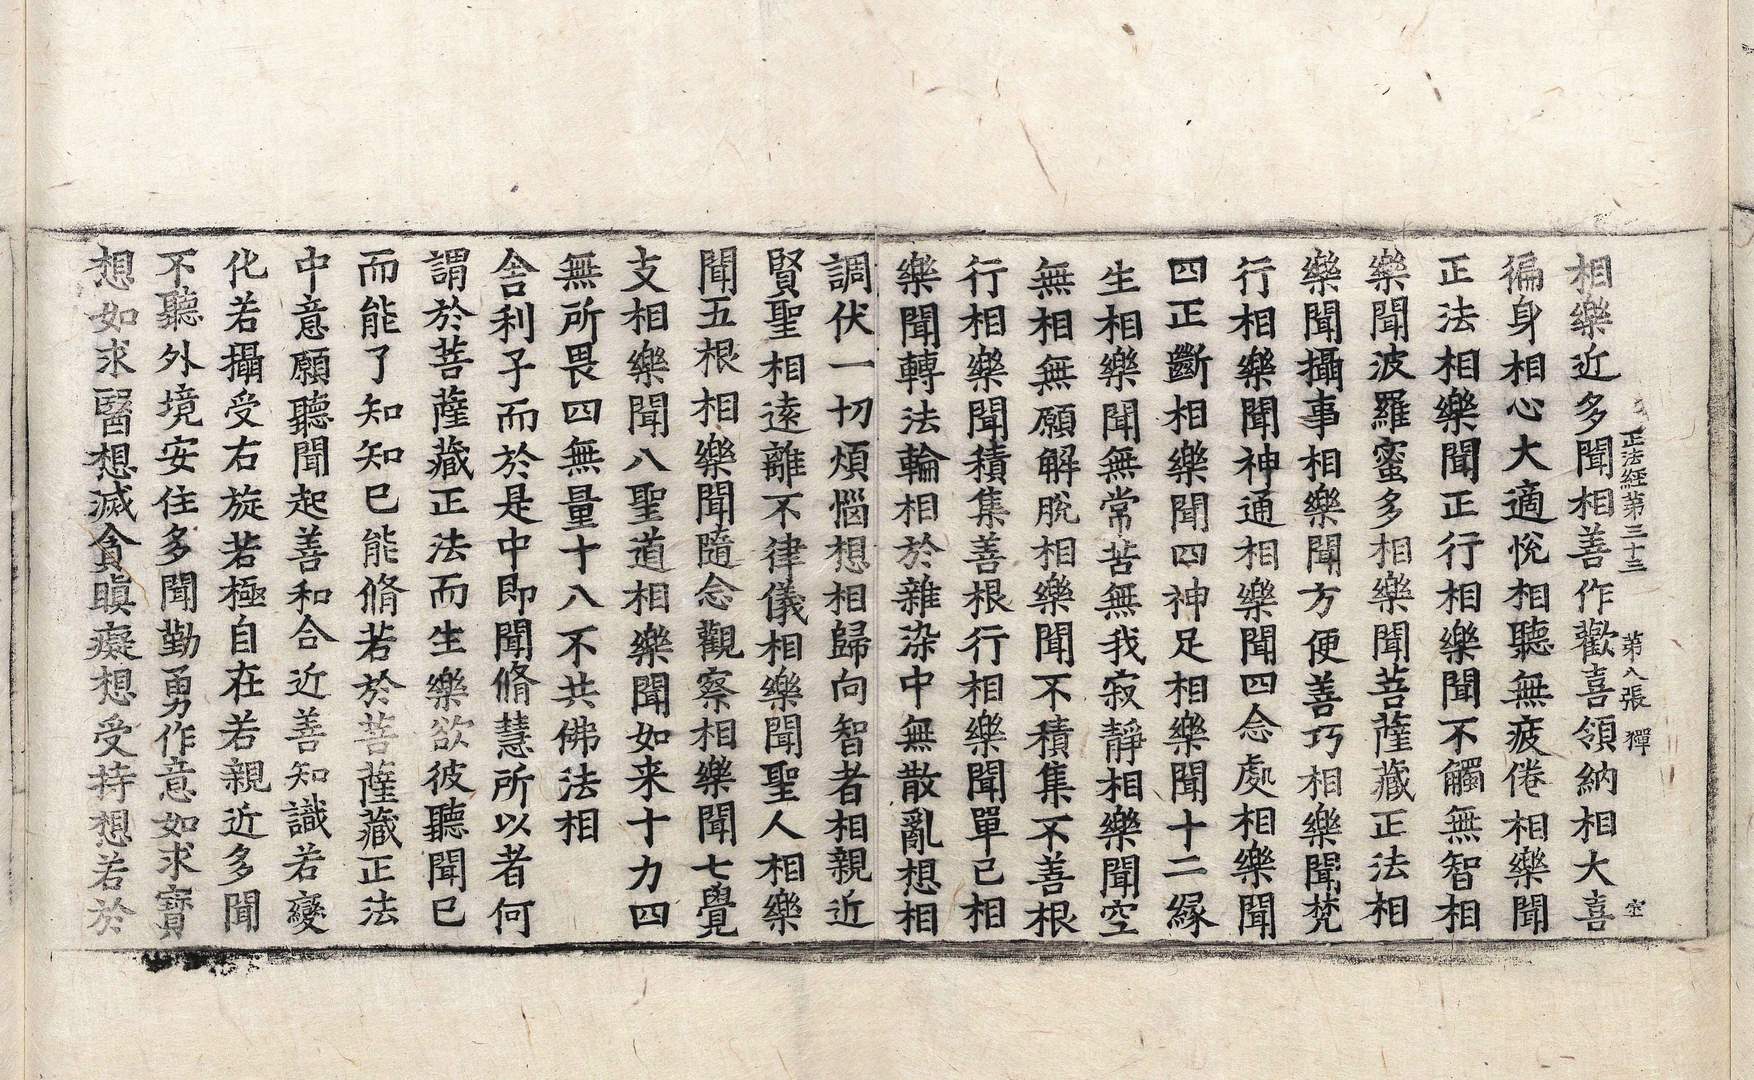 正法經第三十三 第八張 獋
相樂近多聞相善作歡喜領納相大喜
徧身相心大適悅相聽無疲倦相樂聞
正法相樂聞正行相樂聞不觸無智相
樂聞波羅蜜多相樂聞菩薩藏正法相
樂聞攝事相樂聞方便善巧相樂聞梵
行相樂聞神通相樂聞四念處相樂聞
四正斷相樂聞四神足相樂聞十二緣
生相樂聞無常苦無我寂靜相樂聞空
無相無願解脫相樂聞不積集不善根
行相樂聞積集善根行相樂聞單己相
樂聞轉法輪相於雜染中無散亂想相
調伏一切煩惱想相歸向智者相親近
賢聖相遠離不律儀相樂聞聖人相樂
聞五根相樂聞隨念觀察相樂聞七覺
支相樂聞八聖道相樂聞如来十力四
無所畏四無量十八不共佛法相
舍利子而於是中即聞脩慧所以者何
謂於菩薩藏正法而生樂欲彼聽聞已
而能了知知已能脩若於菩薩藏正法
中意願聽聞起善和合近善知識若變
化若攝受右旋若極自在若親近多聞
不聽外境安住多聞勤勇作意如求寶
想如求醫想滅貪瞋癡想受持想若於